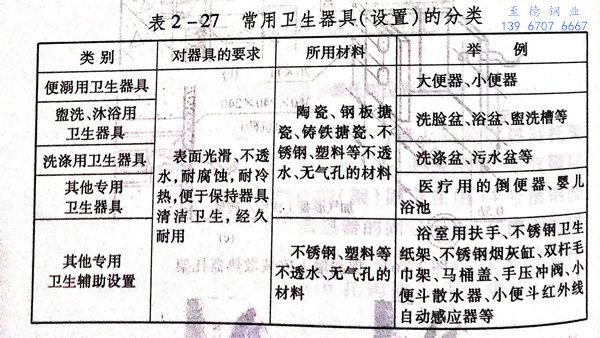 表2-27 常用卫生器具(设置)的分类
至德钢业
139 6707 6667
类别 对器具的要求 所用材料 举例
便溺用卫生器具
大便器、小便器
盥洗、沐浴用
卫生器具
洗脸盆、浴盆、盥洗槽等
洗涤用卫生器具
洗涤盆、污水盆等
其他专用
卫生器具
医疗用的倒便器、婴儿
浴池
表面光滑、不透
水,耐腐蚀,耐冷
热,便于保持器具
清洁卫生,经久
耐用
陶瓷、钢板搪
瓷、铸铁搪瓷、不
锈钢、塑料等不透
水、无气孔的材料
其他专用
卫生辅助设置
不锈钢、塑料等
不透水、无气孔的
材料
浴室用扶手、不锈钢卫生
纸架、不锈钢烟灰缸、双杆毛
巾架、马桶盖、手压冲阀、小
便斗散水器、小便斗红外线
自动感应器等